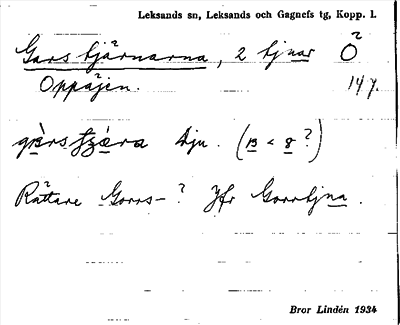 Leksands sn, Leksands och Gagnefs tg, Kopp. l.
Gars tjärnarna, 2 tjnar Ö
Oppåjen. 147.
Djn. (B < 8?)
Rättare Gorrs-? Jfr Gorrtjna.
Bror Lindén 1934